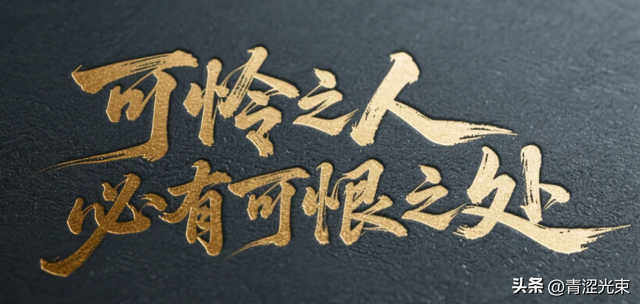 可怜之人
必有可恨之处
头条 @青涩光束